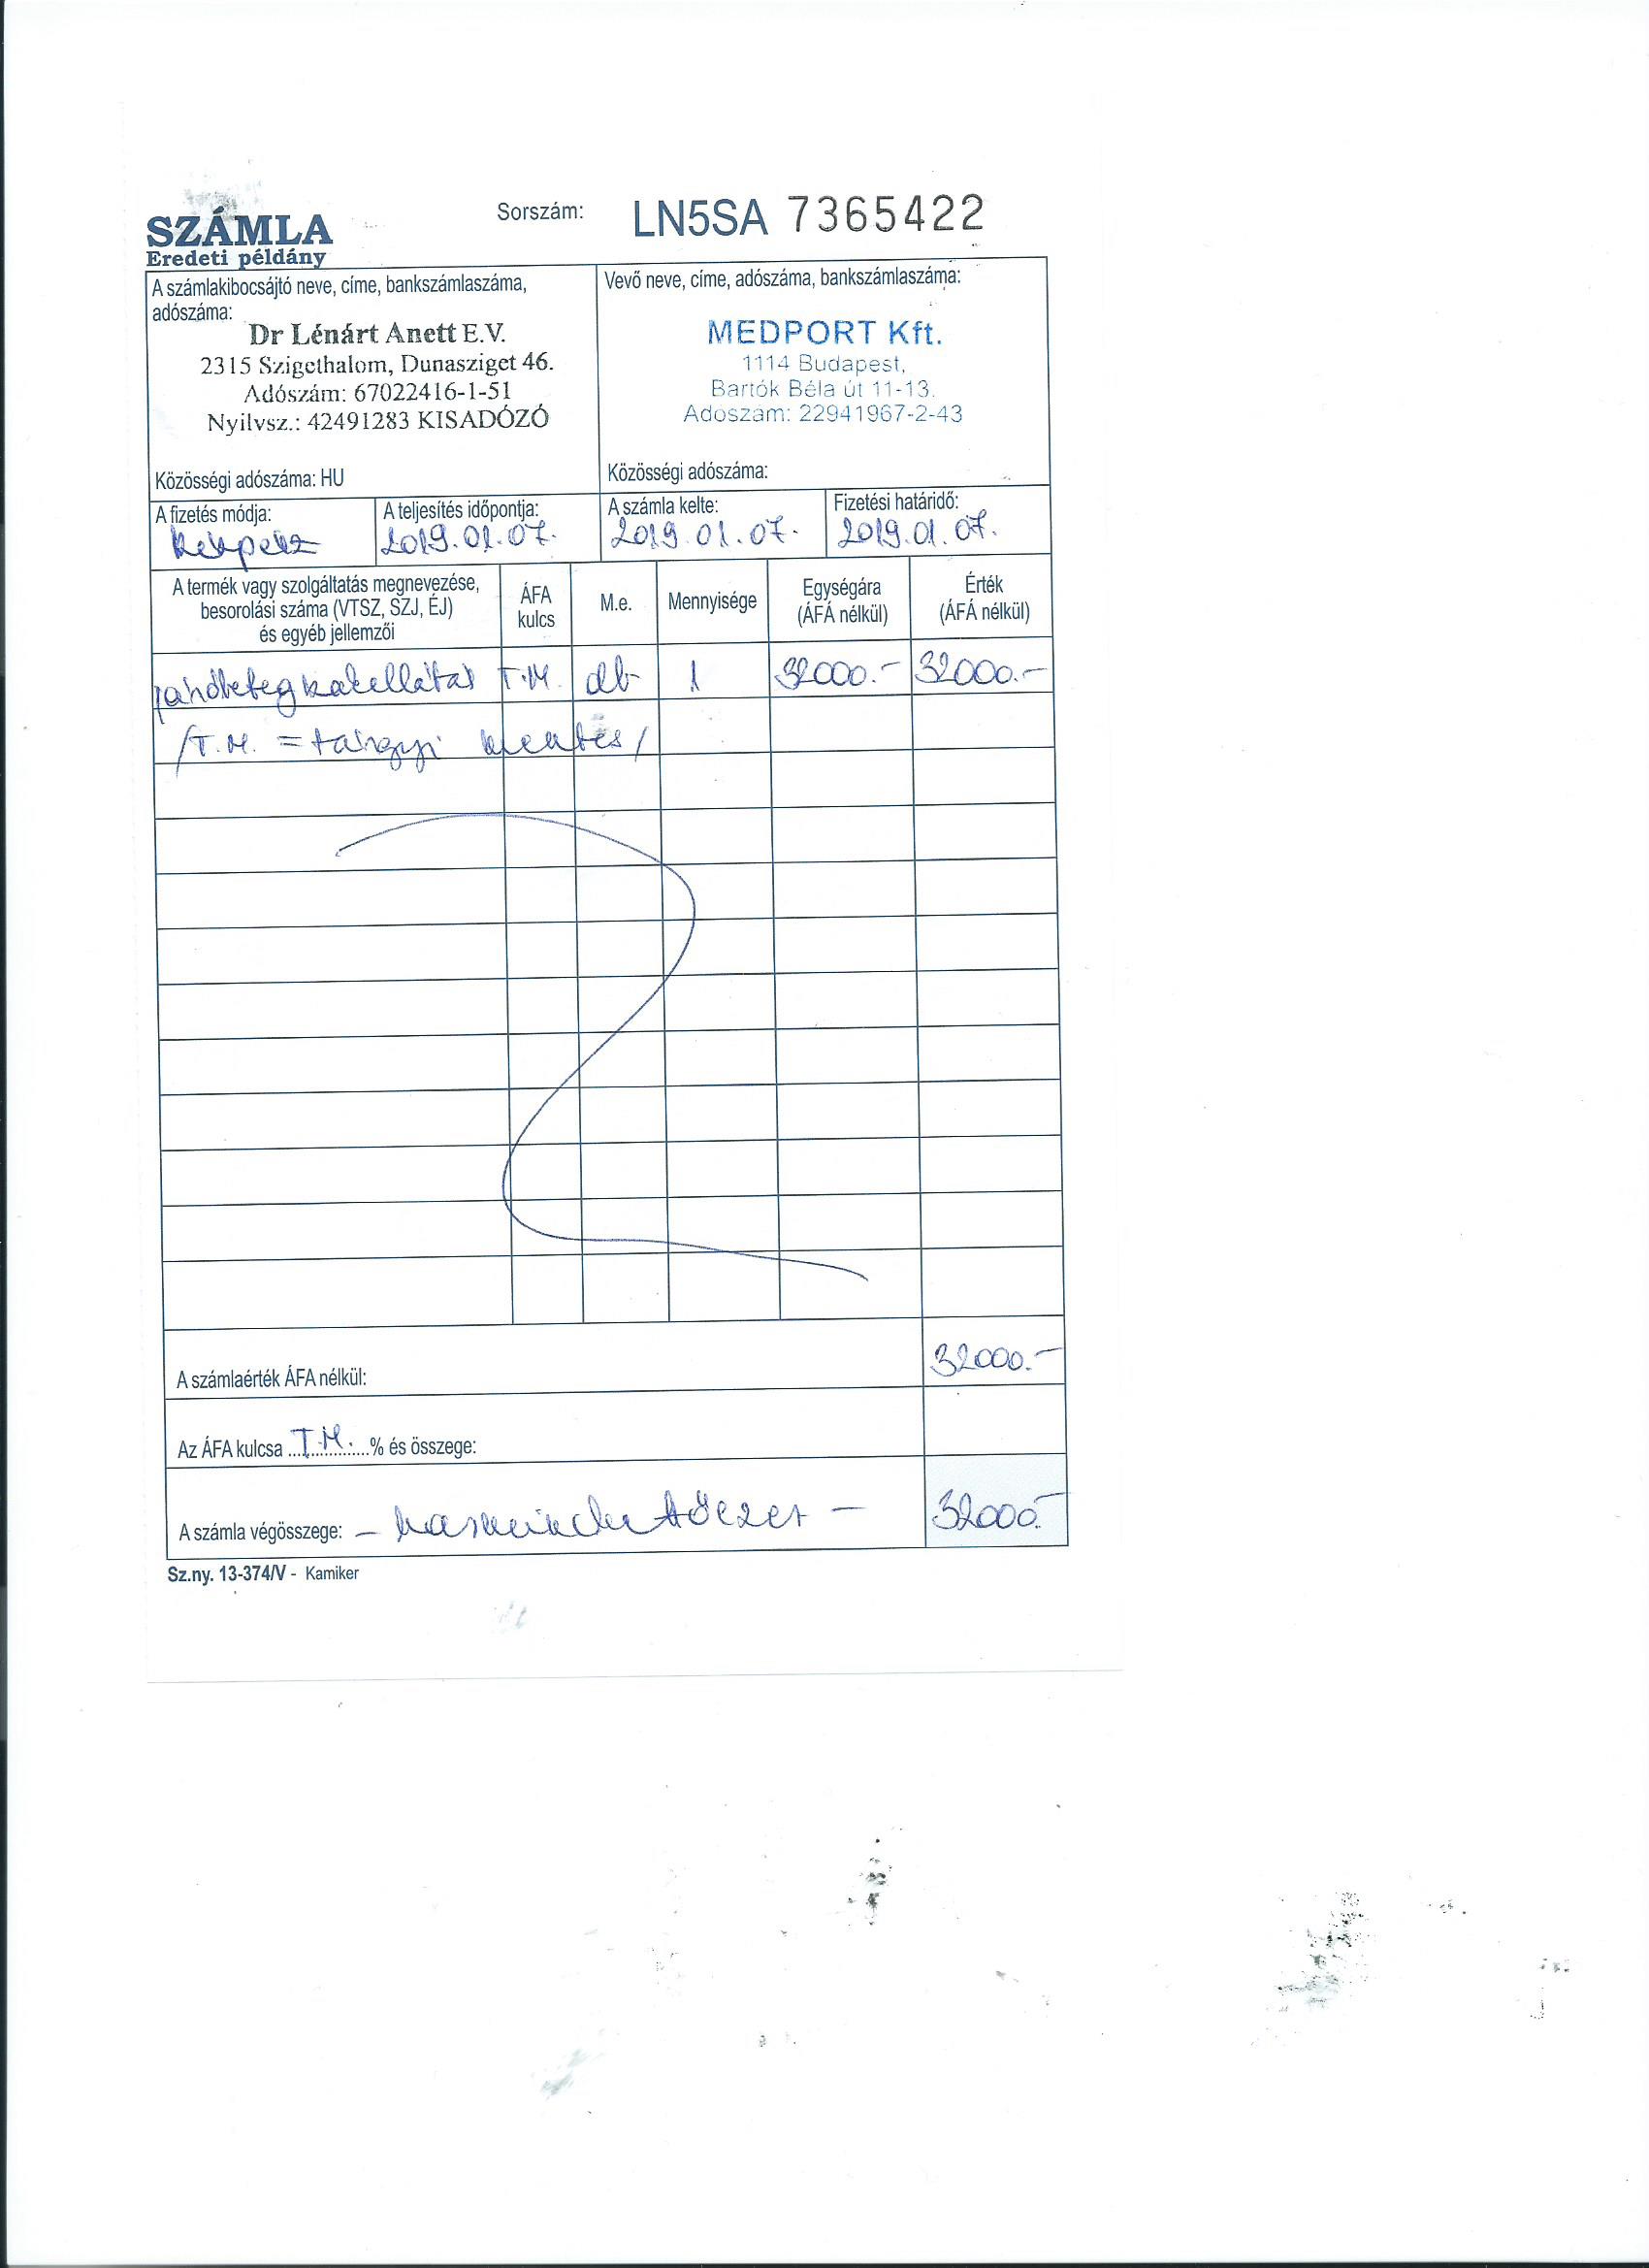 SZÁMLA
Eredeti példány
Sorszám: LN5SA 7365422
A számlakibocsájtó neve, címe, bankszámlaszáma,
adószáma:
Dr Lénárt Anett E.V.
2315 Szigethalom, Dunasziget 46.
Adószám: 67022416-1-51
Nyilvsz.: 42491283 KISADÓZÓ
Közösségi adószáma: HU
Vevő neve, címe, adószáma, bankszámlaszáma:
MEDPORT Kft.
1114 Budapest,
Bartók Béla út 11-13.
Adószám: 22941967-2-43
Közösségi adószáma:
A fizetés módja:
készpénz
A teljesítés időpontja:
2019.01.07.
A számla kelte:
2019.01.07.
Fizetési határidő:
2019.01.07.
A termék vagy szolgáltatás megnevezése,
besorolási száma (VTSZ, SZJ, ÉJ)
és egyéb jellemzői
ÁFA
kulcs
M.e.
Mennyisége
Egységára
(ÁFÁ nélkül)
Érték
(ÁFÁ nélkül)
járóbetegszakellátás T.M. db 1 32000.- 32000.-
/T.M. = tárgyi mentes/
A számlaérték ÁFA nélkül: 32000.-
Az ÁFA kulcsa T.M. % és összege:
A számla végösszege: - harminckettőezer - 32000.-
Sz.ny. 13-374/V - Kamiker